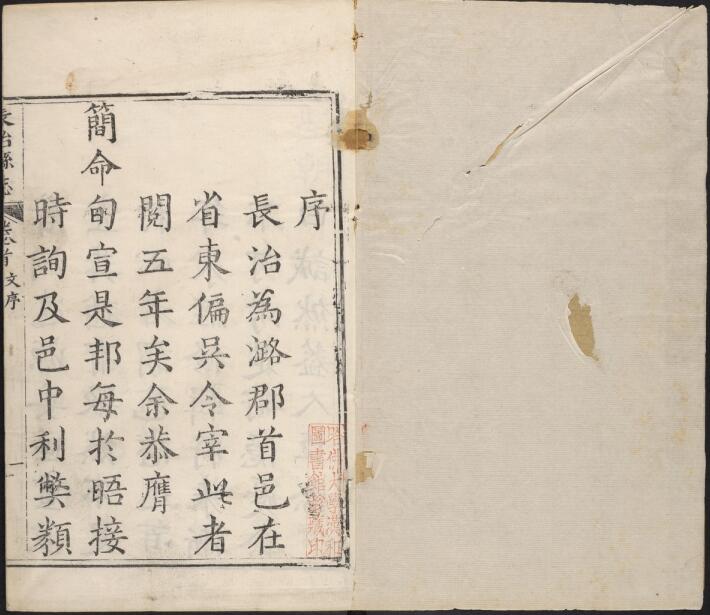 序
長治為潞郡首邑在
省東偏吳令宰此者
閱五年矣余恭膺
簡命旬宣是邦每於晤接
時詢及邑中利弊纇
長治縣志
卷首
文序
一
哈佛大學漢和
圖書館珍藏印